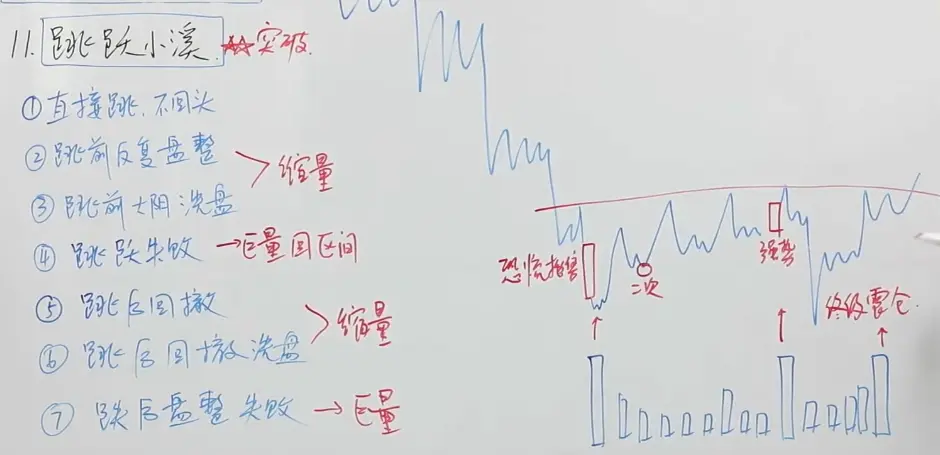 11. 跳跃小溪. ☆☆突破.
① 直接跳.不回头
② 跳前反复盘整
③ 跳前大阴洗盘
缩量
④ 跳跃失败 →巨量回区间
⑤ 跳后回撤
⑥ 跳后回撤洗盘
缩量
⑦ 跌后盘整失败 →巨量
恐慌抛售
二次
强势
终级震仓.